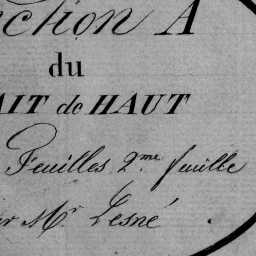 ction A
du
AIT de HAUT
Feuilles 2me. feuille
r Mr Lesné